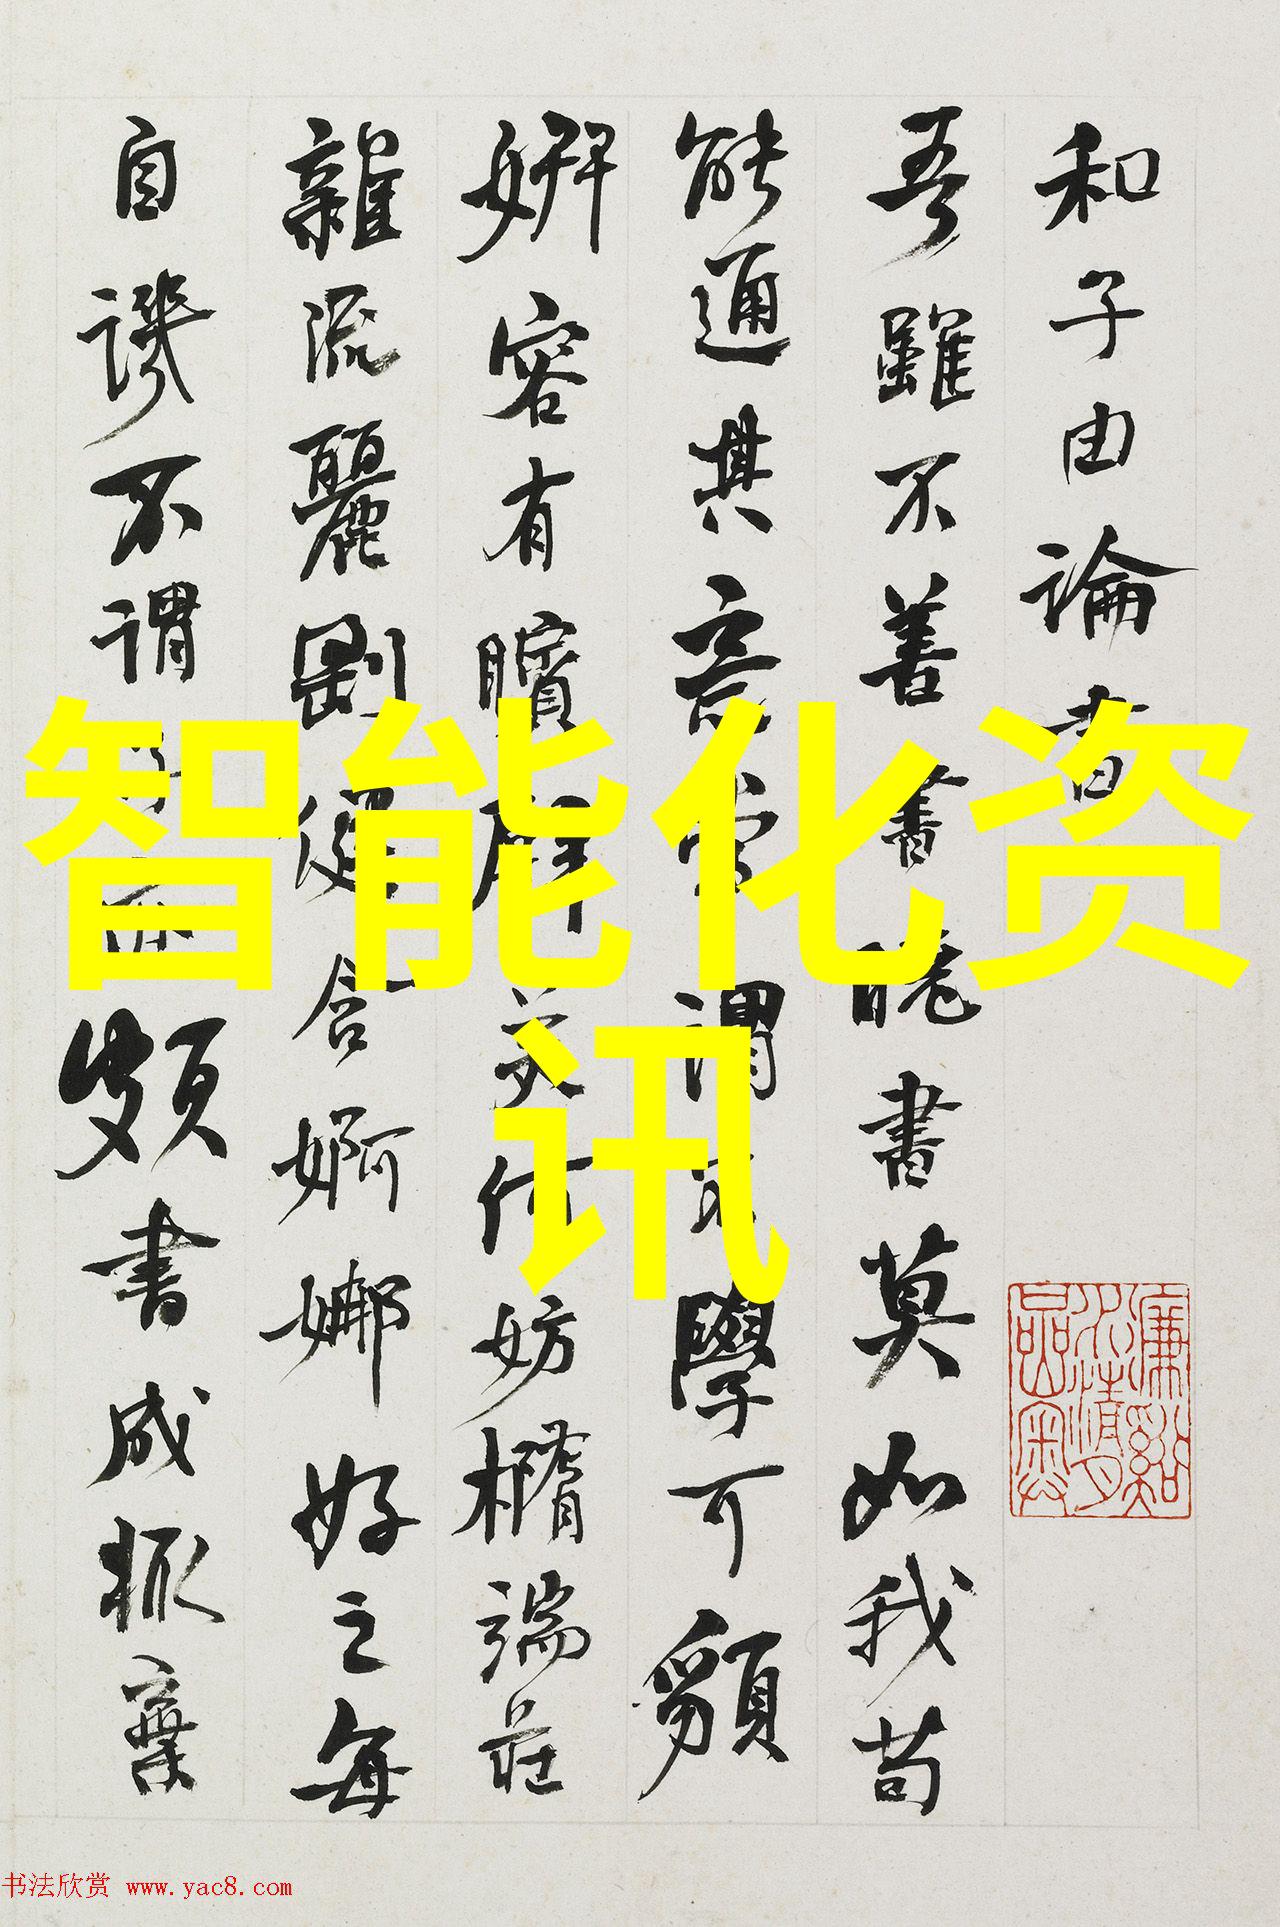 和子由論書
吾雖不善書曉書莫如我苟
能通其意常謂不學可貌
妍容有矉璧美何妨橢端莊
雜流麗剛健含婀娜好之每
自譏不謂子亦頗書成輒棄
智能化资
讯
书法欣赏 www.yac8.com